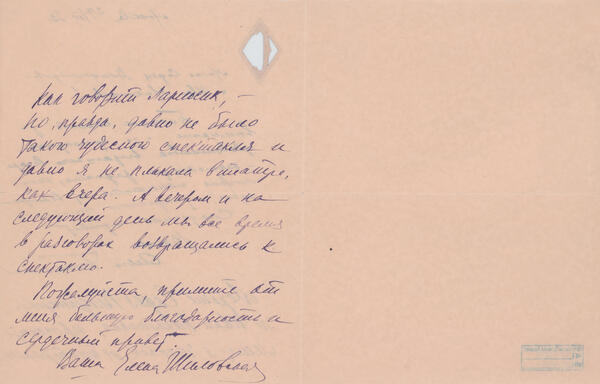 Как говорит Лариосик, –
но, правда, давно не было
такого чудесного спектакля и
давно я не плакала в театре,
как вчера. А вечером и на
следующий день мы все время
в разговорах возвращались к
спектаклю.
Пожалуйста, примите от
меня большую благодарность и
сердечный привет.
Ваша Елена Шиловская